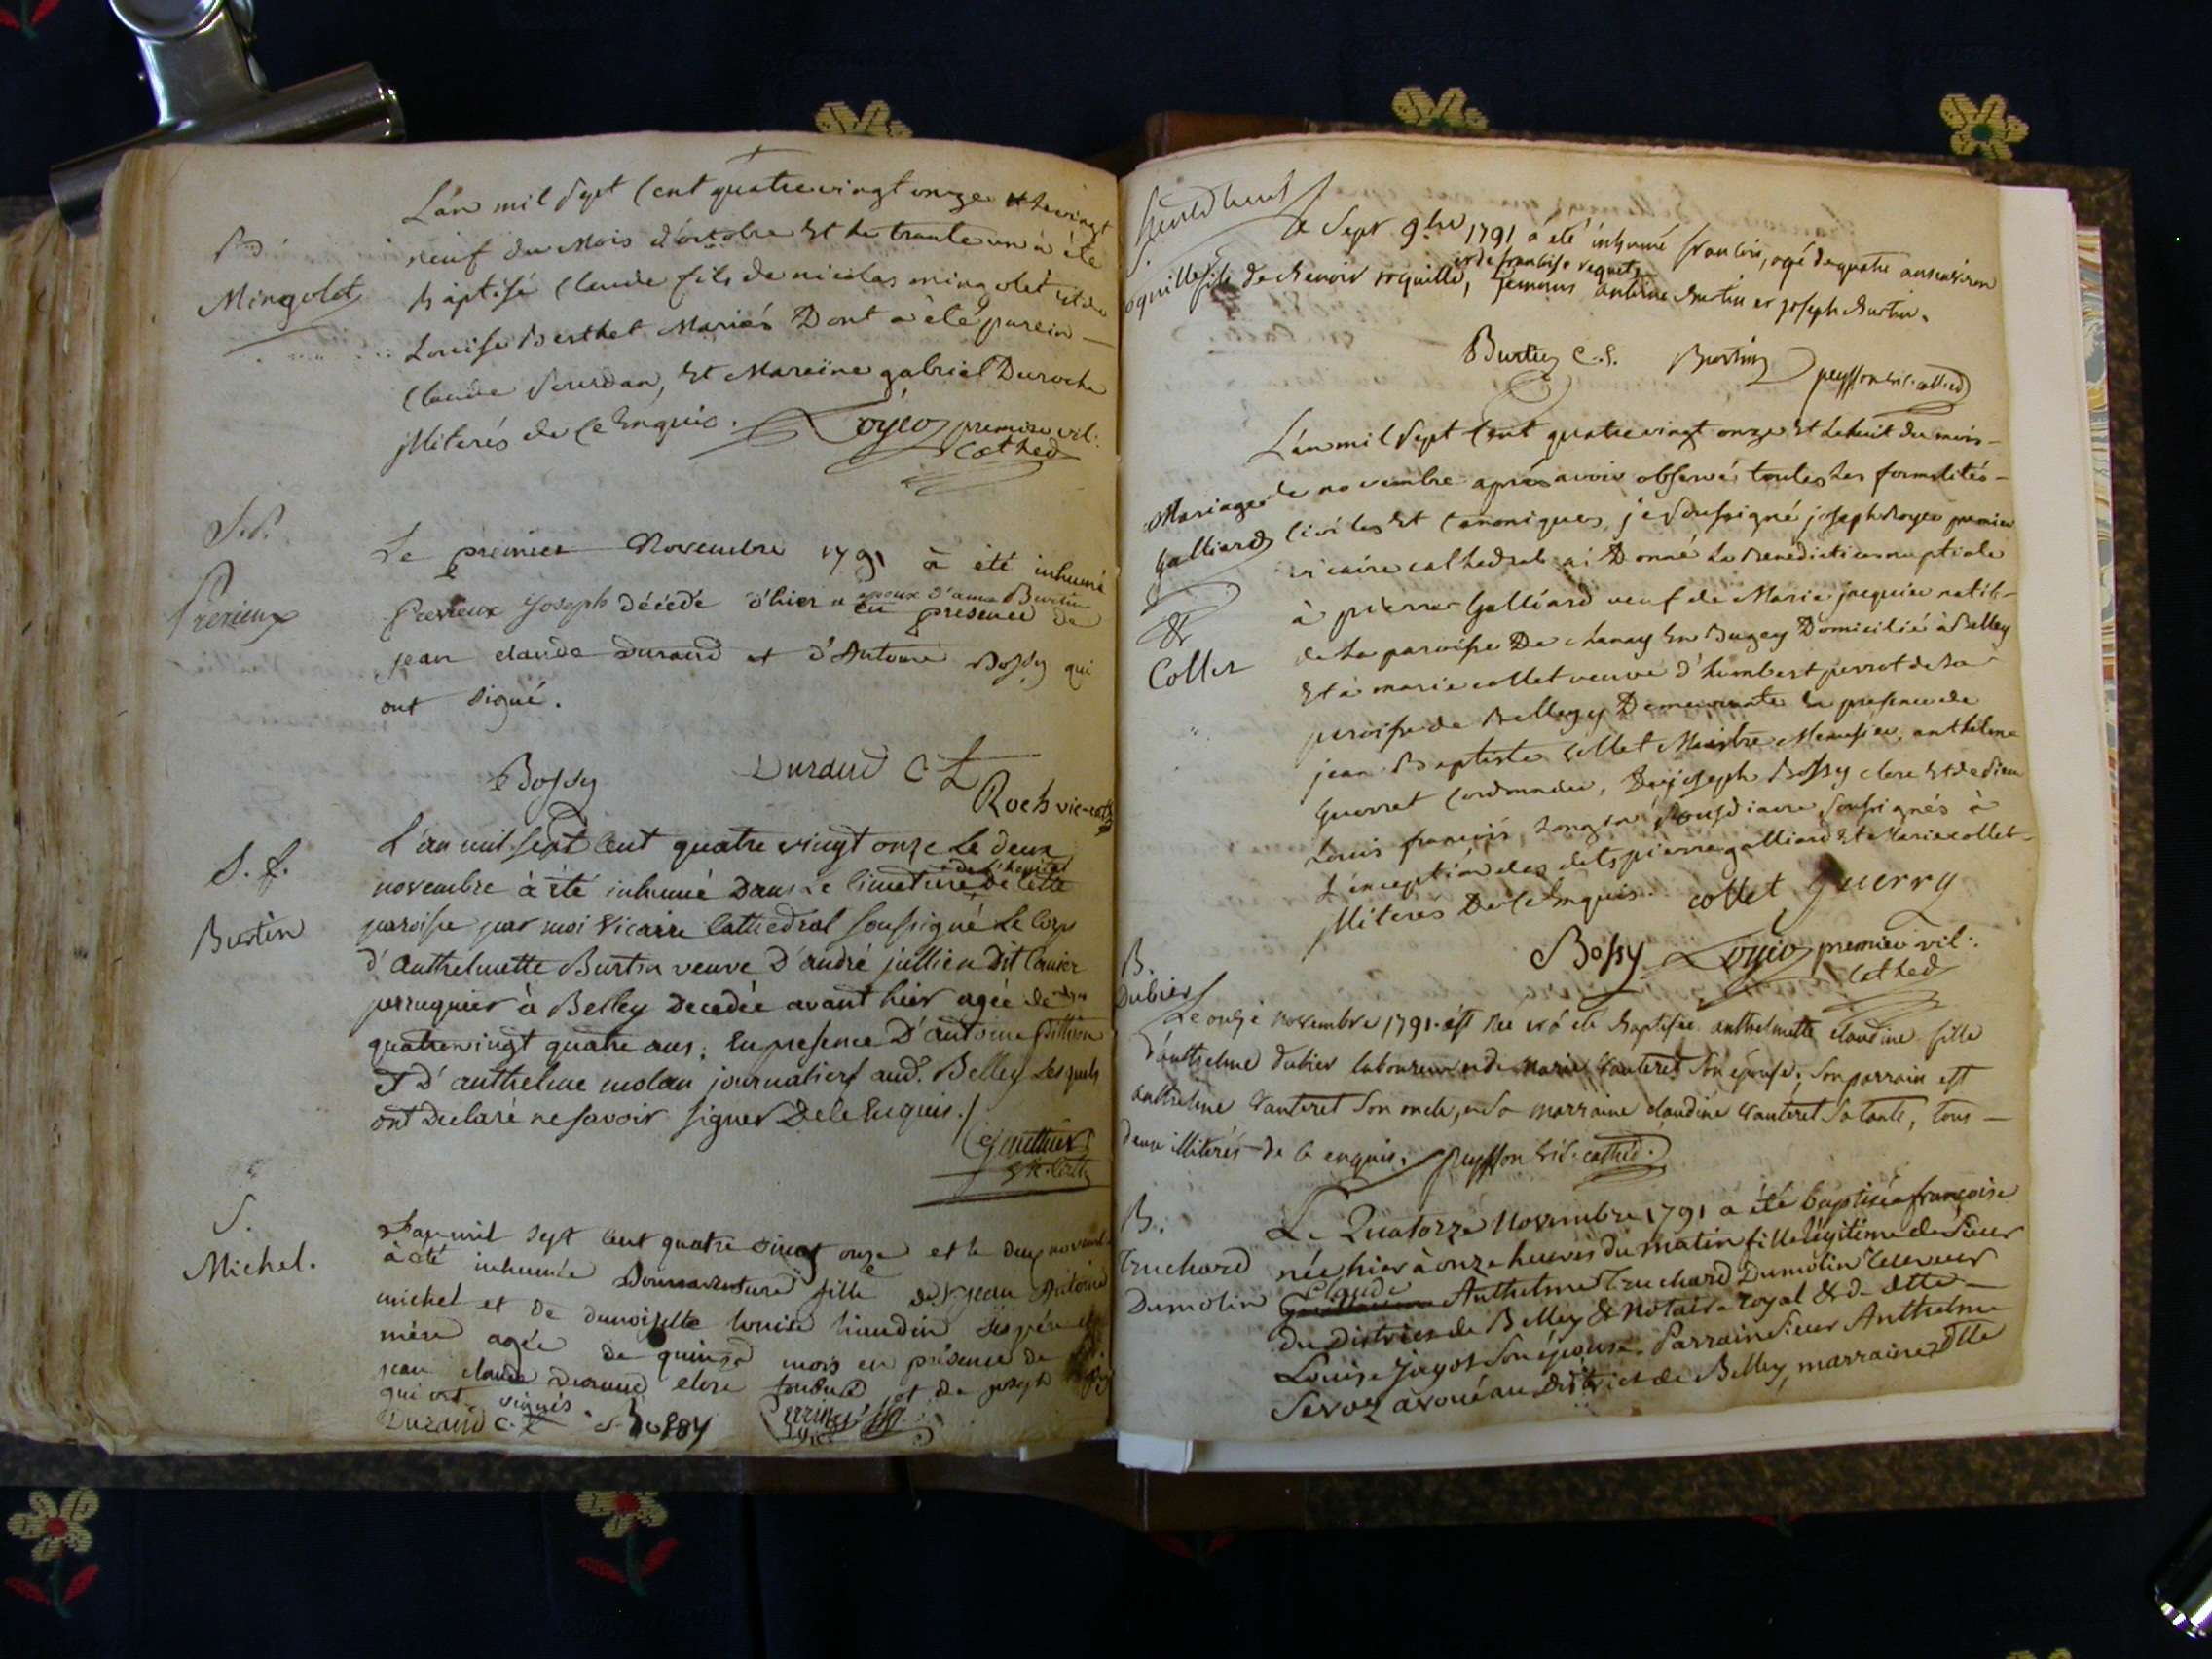 L'an mil sept cent quatre vingt onze et le vingt
B.
neuf du mois d'octobre et le trante un à été
Mingolet
baptisé Claude fils de nicolas mingolet et de
Louise Berthet Mariés Dont à été parein
Claude Jourdan, et Mareine gabriel Duroche
illiterés de ce enquis. Royeo premier vic:
cathed
Le premier Novembre 1791 à été inhumé
Prerieux
Prerieux Joseph décédé d'hier epoux d'anne Burtin en presence de
jean claude durand et d'Antoine Bossy qui
ont signé.
Bossy Durand C
Roch vic-cath
L'an mil sept cent quatre vingt onze le deux
novembre à été inhumé dans le cimetiere de l'hopital de cette
Burtin
paroisse par moi Vicaire Cathedral soussigné le corps
d'Anthelmette Burtin veuve D'andré jullien dit
perruquier à Belley decedée avant hier agée de
quatrevingt quatre ans; en presence D'antoine
et D'anthelme molan journaliers aud. Belley lesquels
ont declaré ne savoir signer de ce enquis./
Gauthier
vic. cath
S.
L'an mil sept cent quatre vingt onze et le deux novembre
Michel.
à été inhumée Bonnaventure fille de Sr jean Antoine
michel et de demoiselle louise ses père et
mère agée de quinze mois en présence de
jean claude durand clerc tonsuré et de joseph
qui ont signés
Durand c. Bossy
Le Sept 9bre 1791 à été inhumé francois, agé de quatre ans environ
fils de roquille, et de francoise temoins antoine Burtin et joseph Burtin.
Burtin C.S. Burtin peysson vic. cathed
L'an mil sept cent quatre vingt onze et le huit du mois
Mariage
de novembre après avoir observé toutes les formalités
Galliard
civiles et canoniques, je soussigné joseph Royeo premier
vicaire cathedral ai Donné la Benediction nuptiale
à pierre Galliard veuf de Marie jacquier natif
&
de la paroisse De chanay en Bugey Domicilié à Belley
Collet
et à marie collet veuve d'humbert perrot de la
paroisse de Belley y Demeurante en presence de
jean Baptiste collet Maistre Menusier, anthelme
Guerret cordonnier, De joseph Bossy clerc et de Sieur
Louis françois soussignés à
l'exception des dits pierre galliard et Marie collet
illiteres De ce enquis. collet guerry
Bossy Royeo premier vic:
cathed
B.
Dubier
Le onze novembre 1791 est née et à été baptisée anthelmette claudine fille
d'anthelme dubier laboureur et de marie vanteret son épouse. Son parrain est
anthelme vanteret son oncle, et sa marraine claudine vanteret sa tante, tous
deux illiterés de ce enquis. peysson vic. cathéd.
B.
Le Quatorze Novembre 1791 a été baptisée françoise
Truchard
née hier à onze heures du matin fille légitime de Sieur
Dumolin
Claude Anthelme Truchard Dumolin receveur
du District de Belley & Notaire royal & de dlle
Louise Jagot son épouse. Parrain Sieur Anthelme
Servoz avoué au District de Belley, marraine dlle